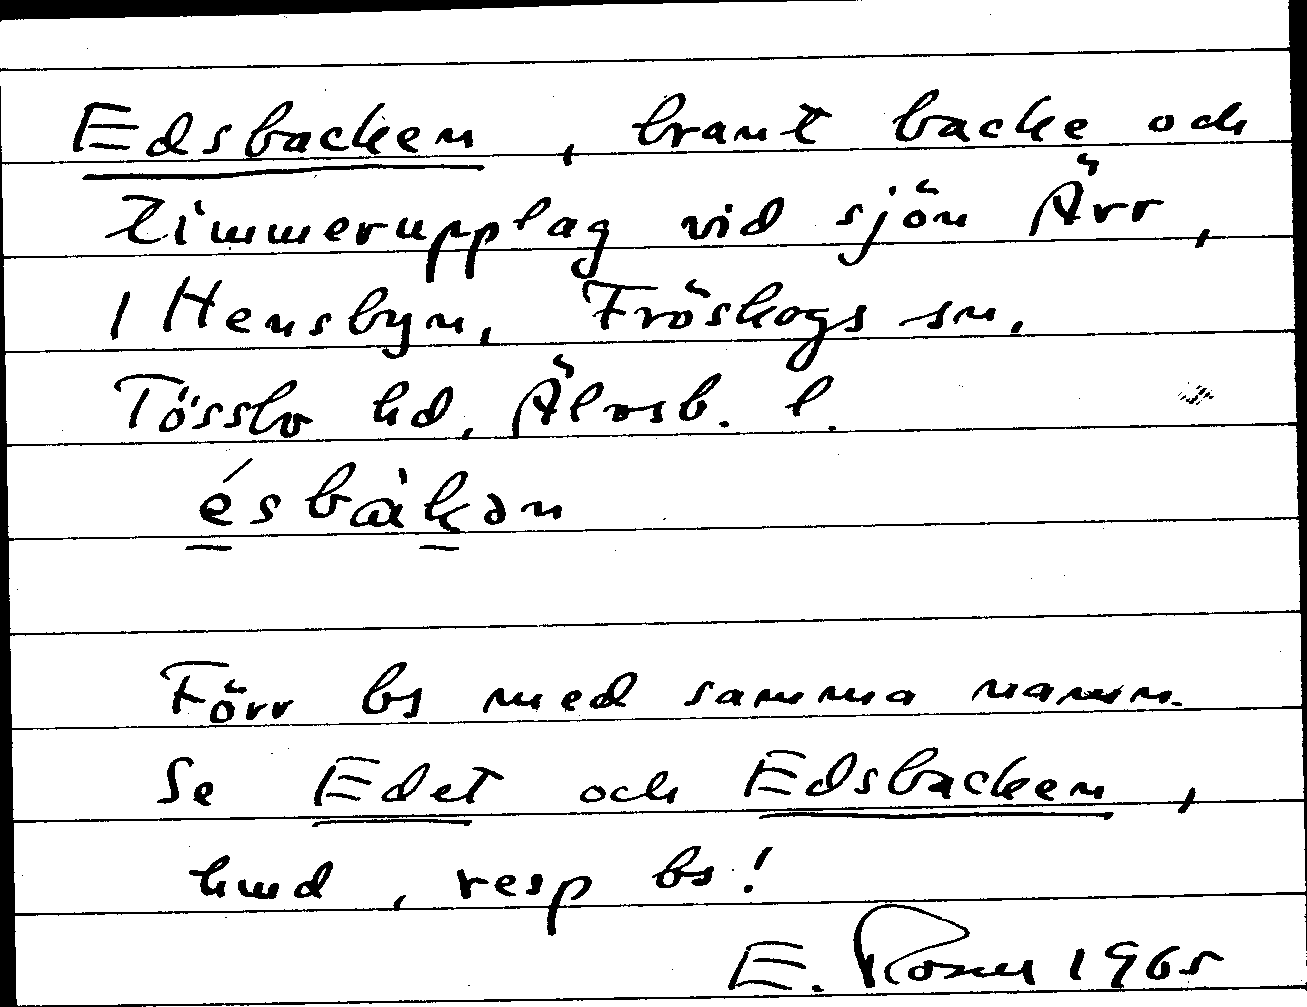 Edsbacken, brant backe och
timmerupplag vid sjön Ärr,
i Hensbyn, Fröskogs sn.
Tössbo hd, Älvsb. l.
ésbàkən
Förr bs med samma namn.
Se Edet och Edsbacken,
hmd, resp bs!
E. 1965